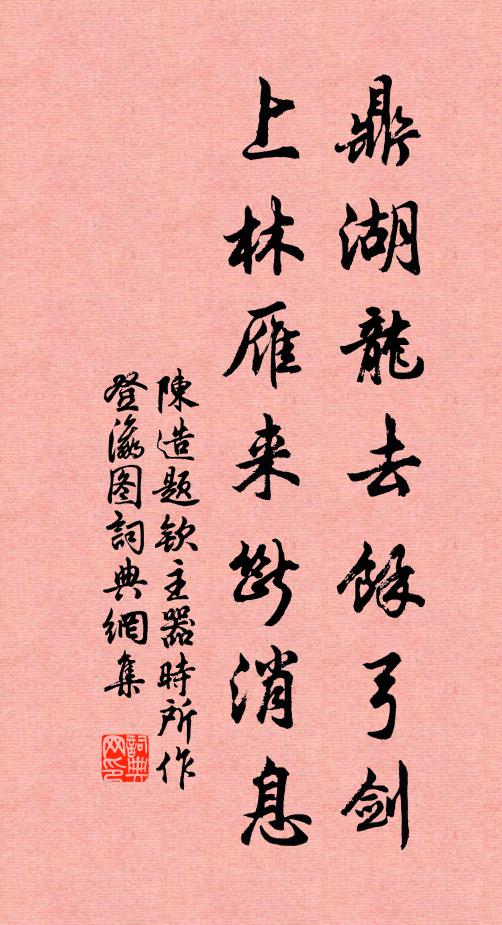 鼎湖龍去餘弓劍
上林雁来斷消息
陳造題欽主器時所作
登瀛图詞典網集
詞典网印